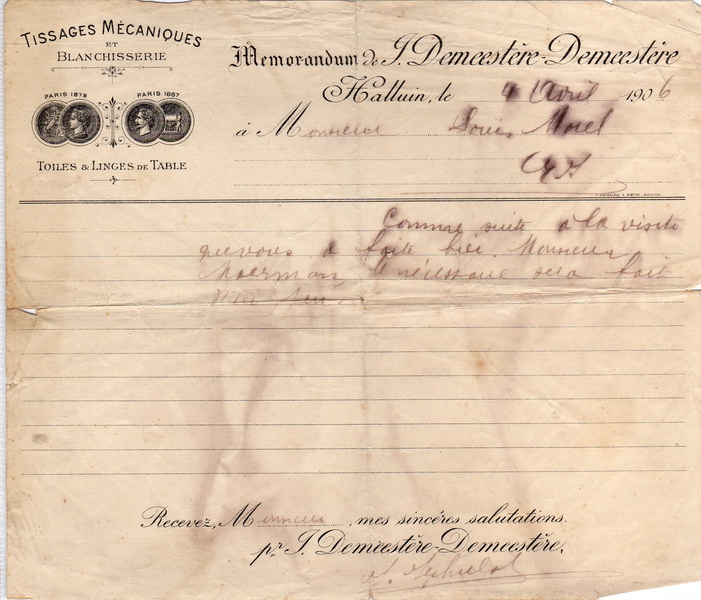 TISSAGES MÉCANIQUES
ET
BLANCHISSERIE
PARIS 1878 PARIS 1867
TOILES & LINGES DE TABLE
Memorandum de J. Demeestère-Demeestère
Halluin, le 4 Avril 1906
à Monsieur Louis Morel
Comme suite à la visite
que vous a faite hier Monsieur
le nécessaire sera fait
Recevez, Monsieur, mes sincères salutations.
pr J. Demeestère-Demeestère,